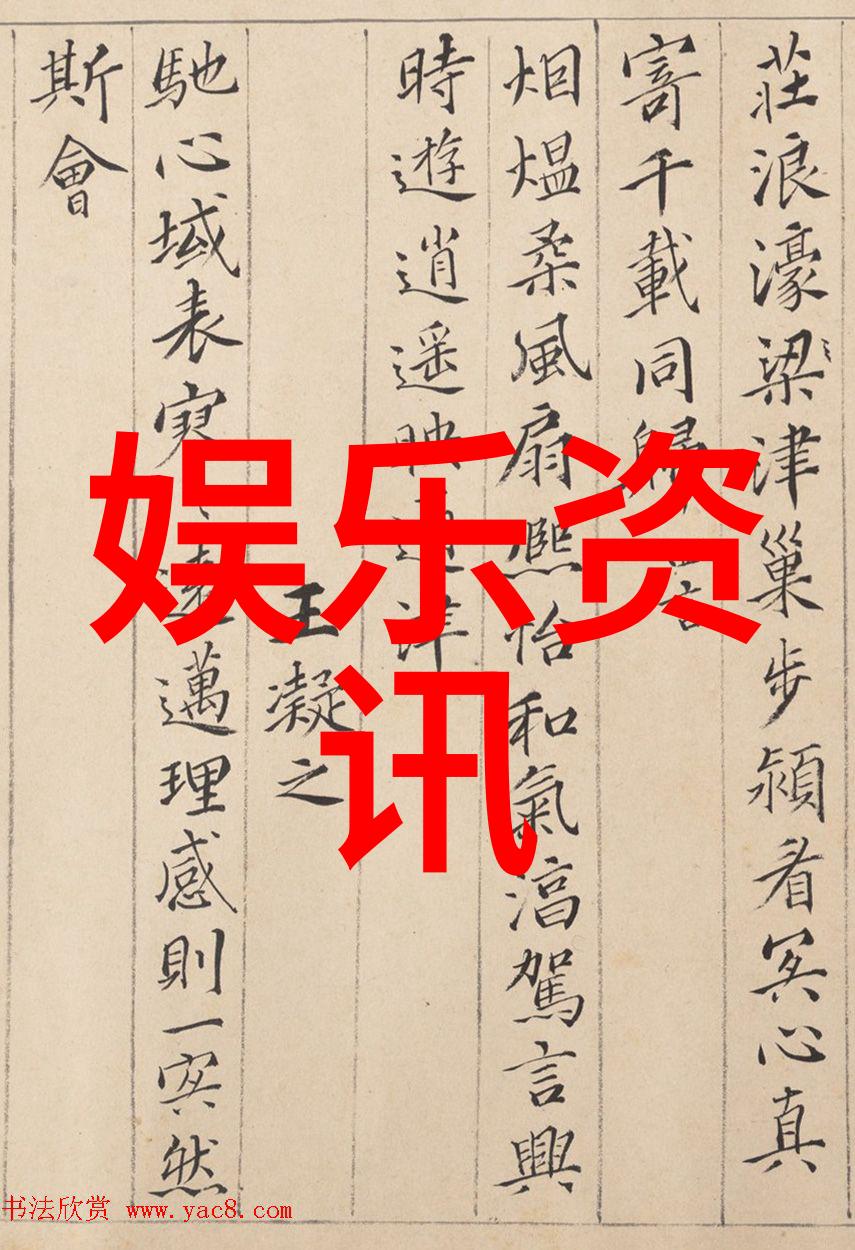 莊浪濠梁津巢步潁眷冥心真
寄千載同歸
烟煴柔風扇熈怡和氣淯駕言興
時遊逍遥映通津
王凝之
馳心域表寥〻遠邁理感則一冥然
斯會
娱乐资
讯
书法欣赏 www.yac8.com